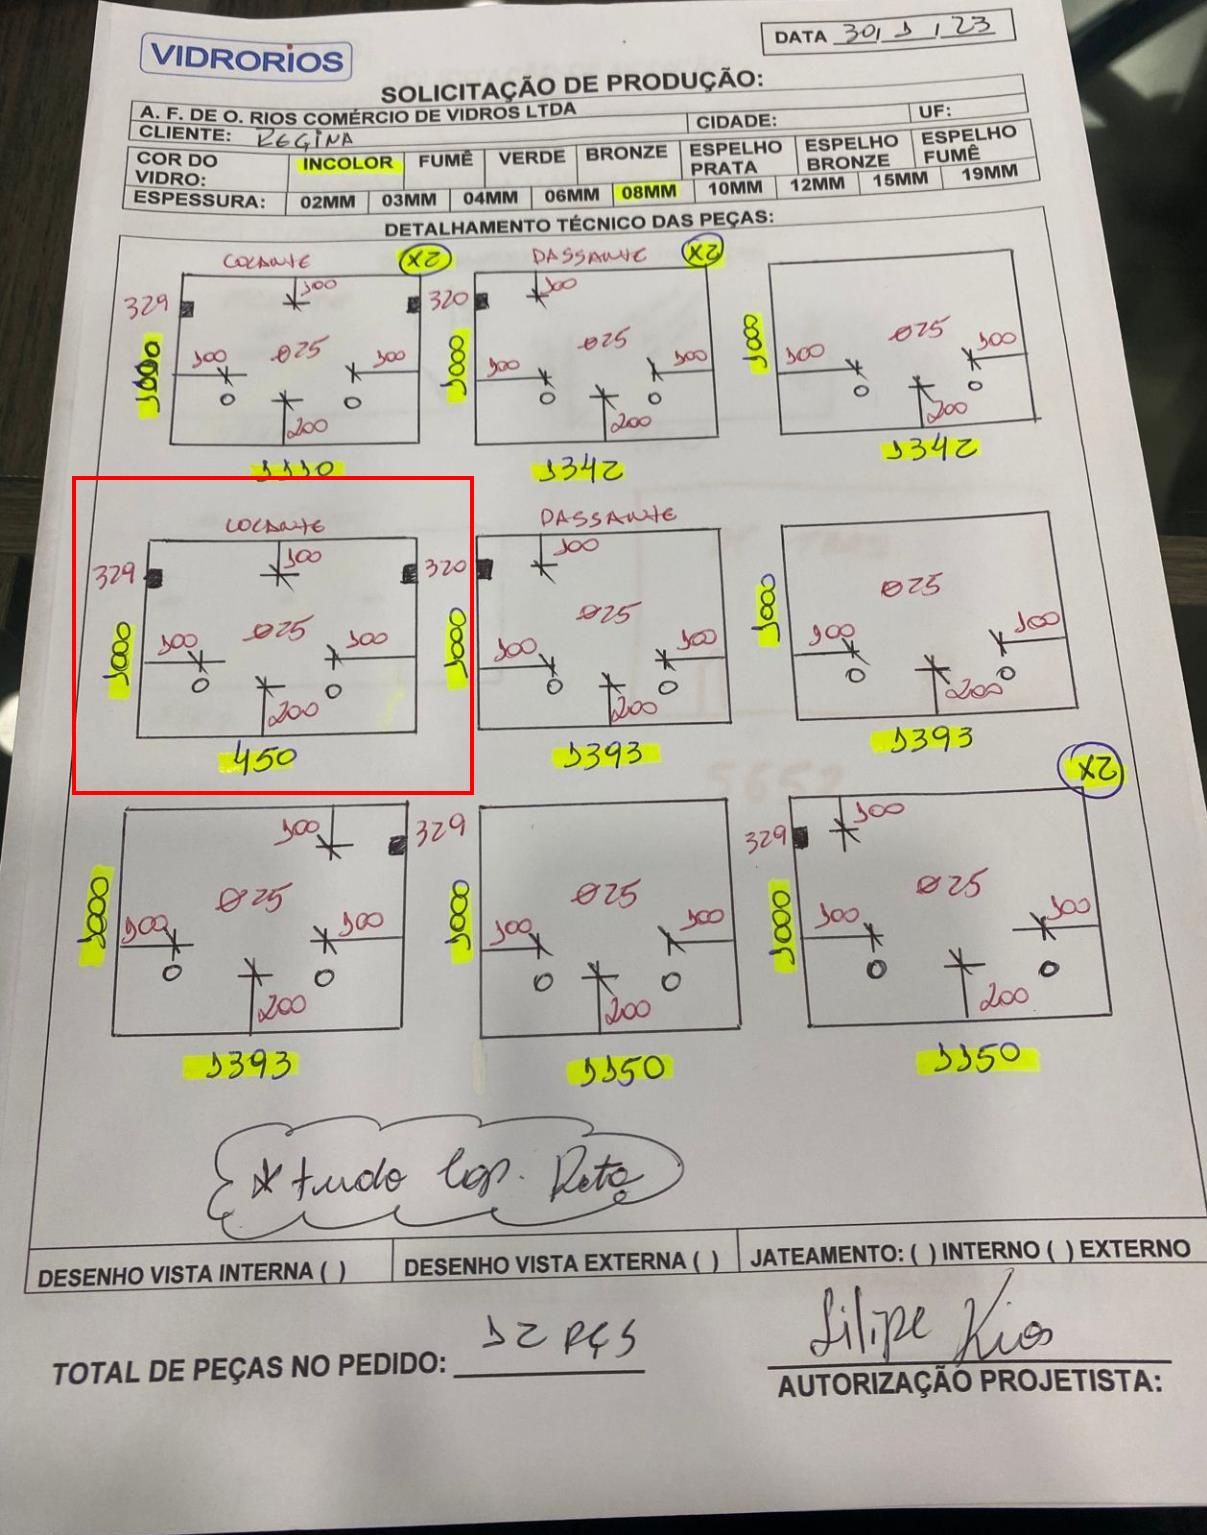 VIDRORIOS
DATA 30, 1, 23
SOLICITAÇÃO DE PRODUÇÃO:
A. F. DE O. RIOS COMÉRCIO DE VIDROS LTDA
CIDADE: UF:
CLIENTE: REGINA
COR DO VIDRO: INCOLOR FUMÊ VERDE BRONZE ESPELHO PRATA ESPELHO BRONZE ESPELHO FUMÊ
ESPESSURA: 02MM 03MM 04MM 06MM 08MM 10MM 12MM 15MM 19MM
DETALHAMENTO TÉCNICO DAS PEÇAS:
COLANTE X2 PASSANTE X2
329 100 320 100
1000 100 Ø25 100 1000 100 Ø25 100 1000 100 Ø25 100
200 200 200
1110 1342 1342
COLANTE PASSANTE
329 100 320 100
1000 100 Ø25 100 1000 100 Ø25 100 1000 100 Ø25 100
200 200 200
450 1393 1393
X2
100 329 329 100
1000 100 Ø25 100 1000 100 Ø25 100 1000 100 Ø25 100
200 200 200
1393 1150 1150
* tudo Lap. Reto
DESENHO VISTA INTERNA ( ) DESENHO VISTA EXTERNA ( ) JATEAMENTO: ( ) INTERNO ( ) EXTERNO
TOTAL DE PEÇAS NO PEDIDO: 12 PÇS
Filipe Rios
AUTORIZAÇÃO PROJETISTA: